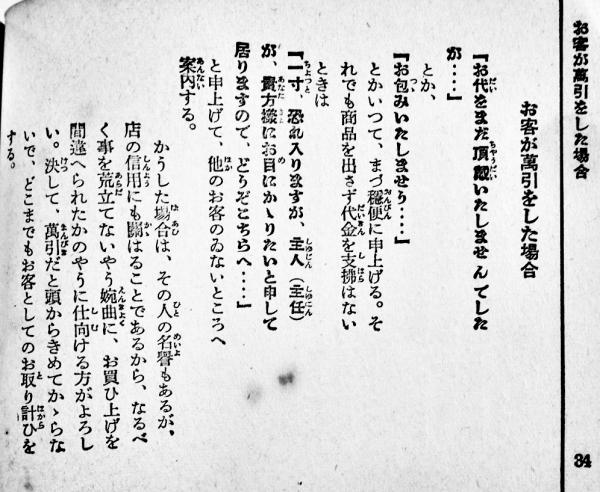 お客が萬引をした場合
34
お客が萬引をした場合
『お代をまだ頂戴いたしませんでした
が‥‥』
とか、
『お包みいたしませう‥‥』
とかいつて、まづ穏便に申上げる。そ
れでも商品を出さず代金を支拂はない
ときは
『一寸、恐れ入りますが、主人（主任）
が、貴方様にお目にかゝりたいと申して
居りますので、どうぞこちらへ‥‥』
と申上げて、他のお客のゐないところへ
案内する。
かうした場合は、その人の名譽もあるが、
店の信用にも關はることであるから、なるべ
く事を荒立てないやう婉曲に、お買ひ上げを
間違へられたかのやうに仕向ける方がよろし
い。決して、萬引だと頭からきめてかゝらな
いで、どこまでもお客としてのお取り計ひを
する。